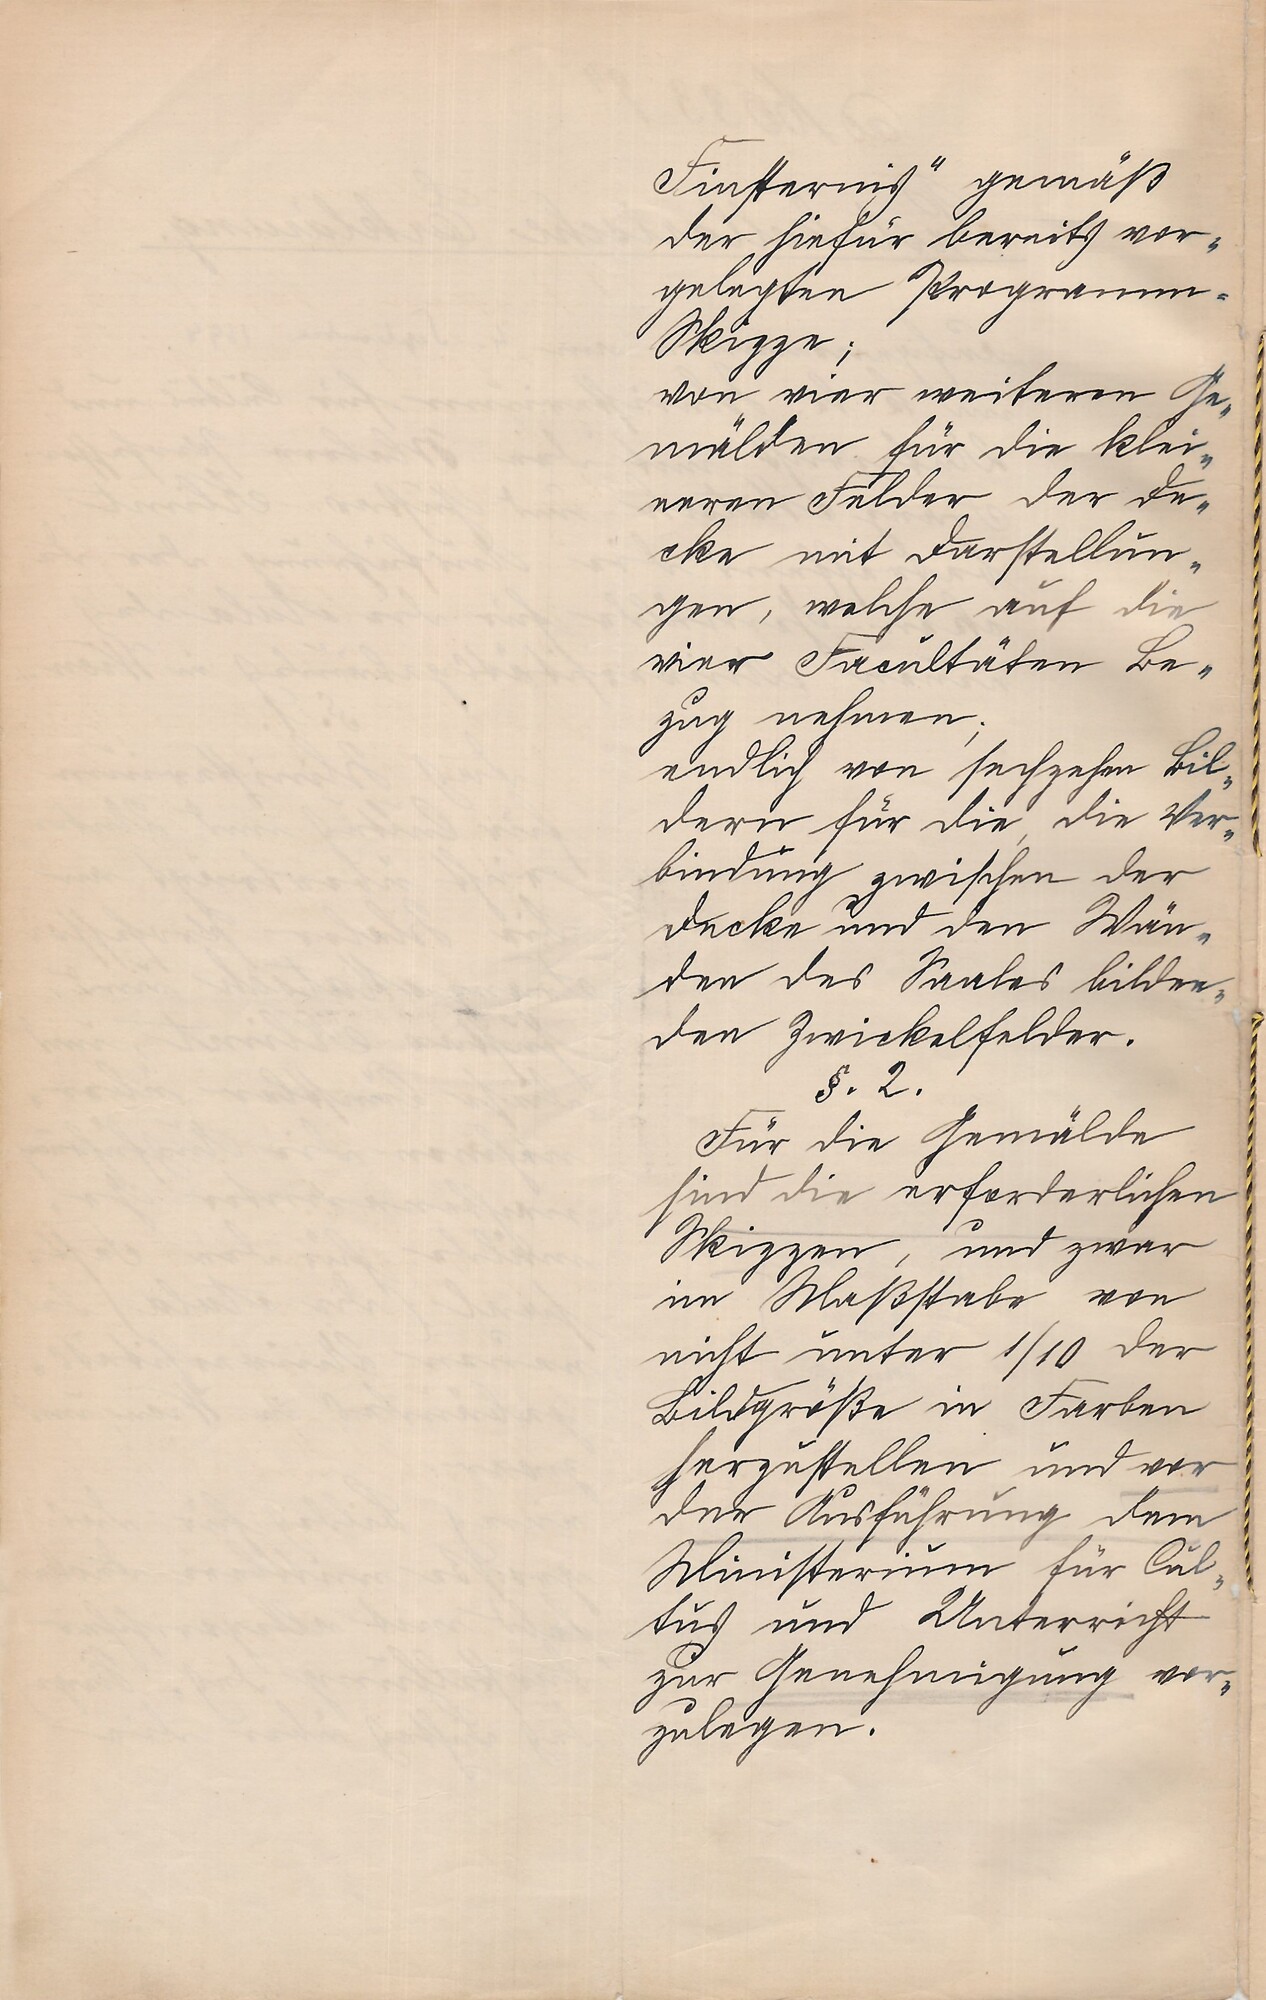 Finsternis" gemäß
der hiefür bereits vor-
gelegten Programm-
Skizze;
von vier weiteren Ge-
mälden für die klei-
neren Felder der De-
cke mit Darstellun-
gen, welche auf die
vier Facultäten Be-
zug nehmen;
endlich von sechzehn Bil-
dern für die, die Ver-
bindung zwischen der
Decke und den Wän-
den des Saales bilden-
den Zwickelfelder.
§. 2.
Für die Gemälde
sind die erforderlichen
Skizzen, und zwar
im Maßstabe von
nicht unter 1/10 der
Bildgröße in Farben
herzustellen und vor
der Ausführung dem
Ministerium für Cul-
tus und Unterricht
zur Genehmigung vor-
zulegen.